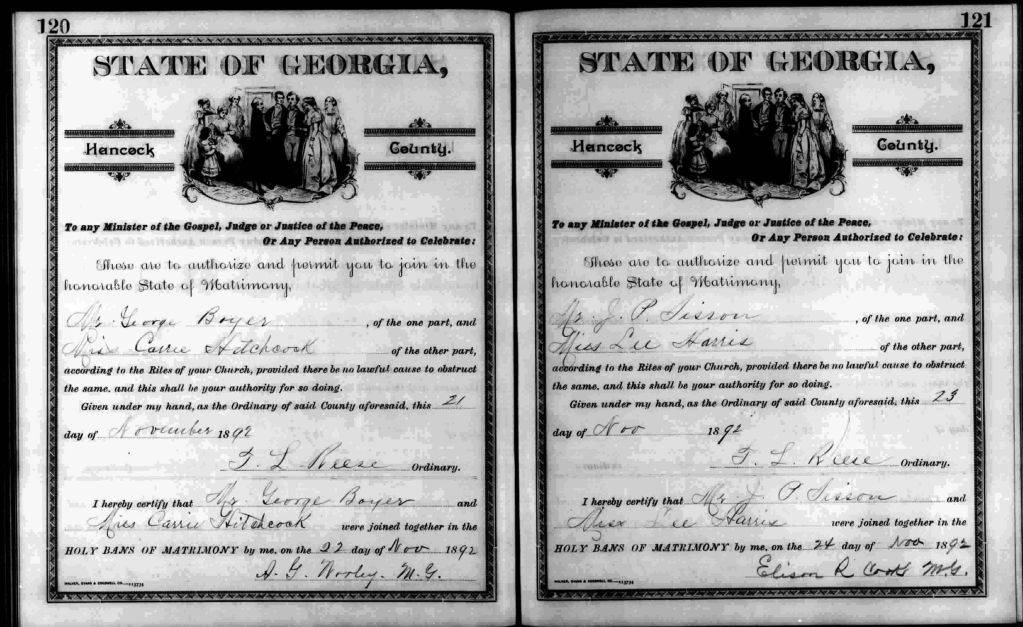 120
STATE OF GEORGIA,
Hancock County.
To any Minister of the Gospel, Judge or Justice of the Peace,
Or Any Person Authorized to Celebrate:
These are to authorize and permit you to join in the
honorable State of Matrimony,
Mr. George Boyer , of the one part, and
Miss Carrie Hitchcock of the other part,
according to the Rites of your Church, provided there be no lawful cause to obstruct
the same, and this shall be your authority for so doing.
Given under my hand, as the Ordinary of said County aforesaid, this 21
day of November 1892
T. L. Reese Ordinary.
I hereby certify that Mr. George Boyer and
Miss Carrie Hitchcock were joined together in the
HOLY BANS OF MATRIMONY by me, on the 22 day of Nov 1892
A. G. Worley. M. G.
121
STATE OF GEORGIA,
Hancock County.
To any Minister of the Gospel, Judge or Justice of the Peace,
Or Any Person Authorized to Celebrate:
These are to authorize and permit you to join in the
honorable State of Matrimony,
Mr. J. P. Sisson , of the one part, and
Miss Lee Harris of the other part,
according to the Rites of your Church, provided there be no lawful cause to obstruct
the same, and this shall be your authority for so doing.
Given under my hand, as the Ordinary of said County aforesaid, this 23
day of Nov 1892
T. L. Reese Ordinary.
I hereby certify that Mr. J. P. Sisson and
Miss Lee Harris were joined together in the
HOLY BANS OF MATRIMONY by me, on the 24 day of Nov 1892
R M.G.